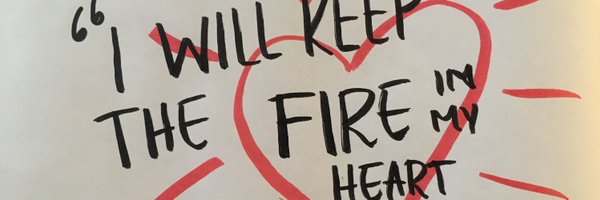 “I WILL KEEP
THE FIRE IN MY
HEART